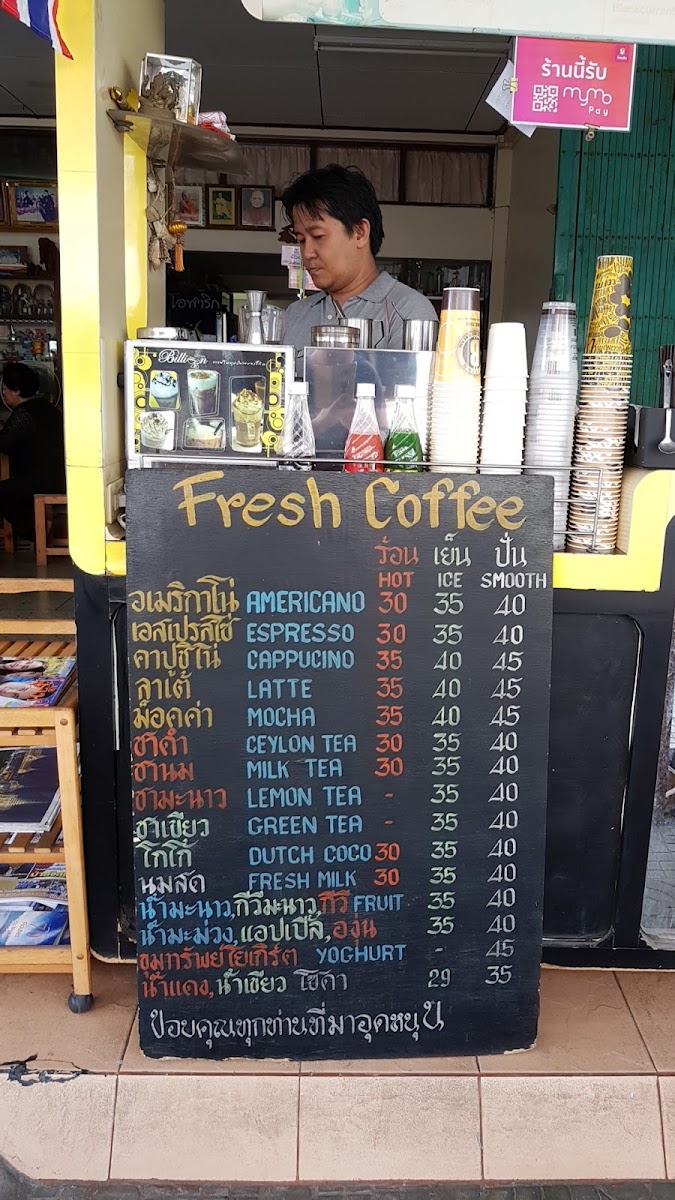 ร้านนี้รับ
mymo
Pay
Billion
Fresh Coffee
ร้อน เย็น ปั่น
HOT ICE SMOOTH
อเมริกาโน่ AMERICANO 30 35 40
เอสเปรสโซ่ ESPRESSO 30 35 40
คาปูชิโน่ CAPPUCINO 35 40 45
ลาเต้ LATTE 35 40 45
ม็อคค่า MOCHA 35 40 45
ชาดำ CEYLON TEA 30 35 40
ชานม MILK TEA 30 35 40
ชามะนาว LEMON TEA - 35 40
ชาเขียว GREEN TEA - 35 40
โกโก้ DUTCH COCO 30 35 40
นมสด FRESH MILK 30 35 40
น้ำมะนาว,กีวีมะนาว,กีวี FRUIT 35 40
น้ำมะม่วง,แอปเปิ้ล,องุ่น 35 40
ชมทรัพย์โยเกิร์ต YOGHURT - 45
น้ำแดง,น้ำเขียว โซดา 29 35
ขอบคุณทุกท่านที่มาอุดหนุน